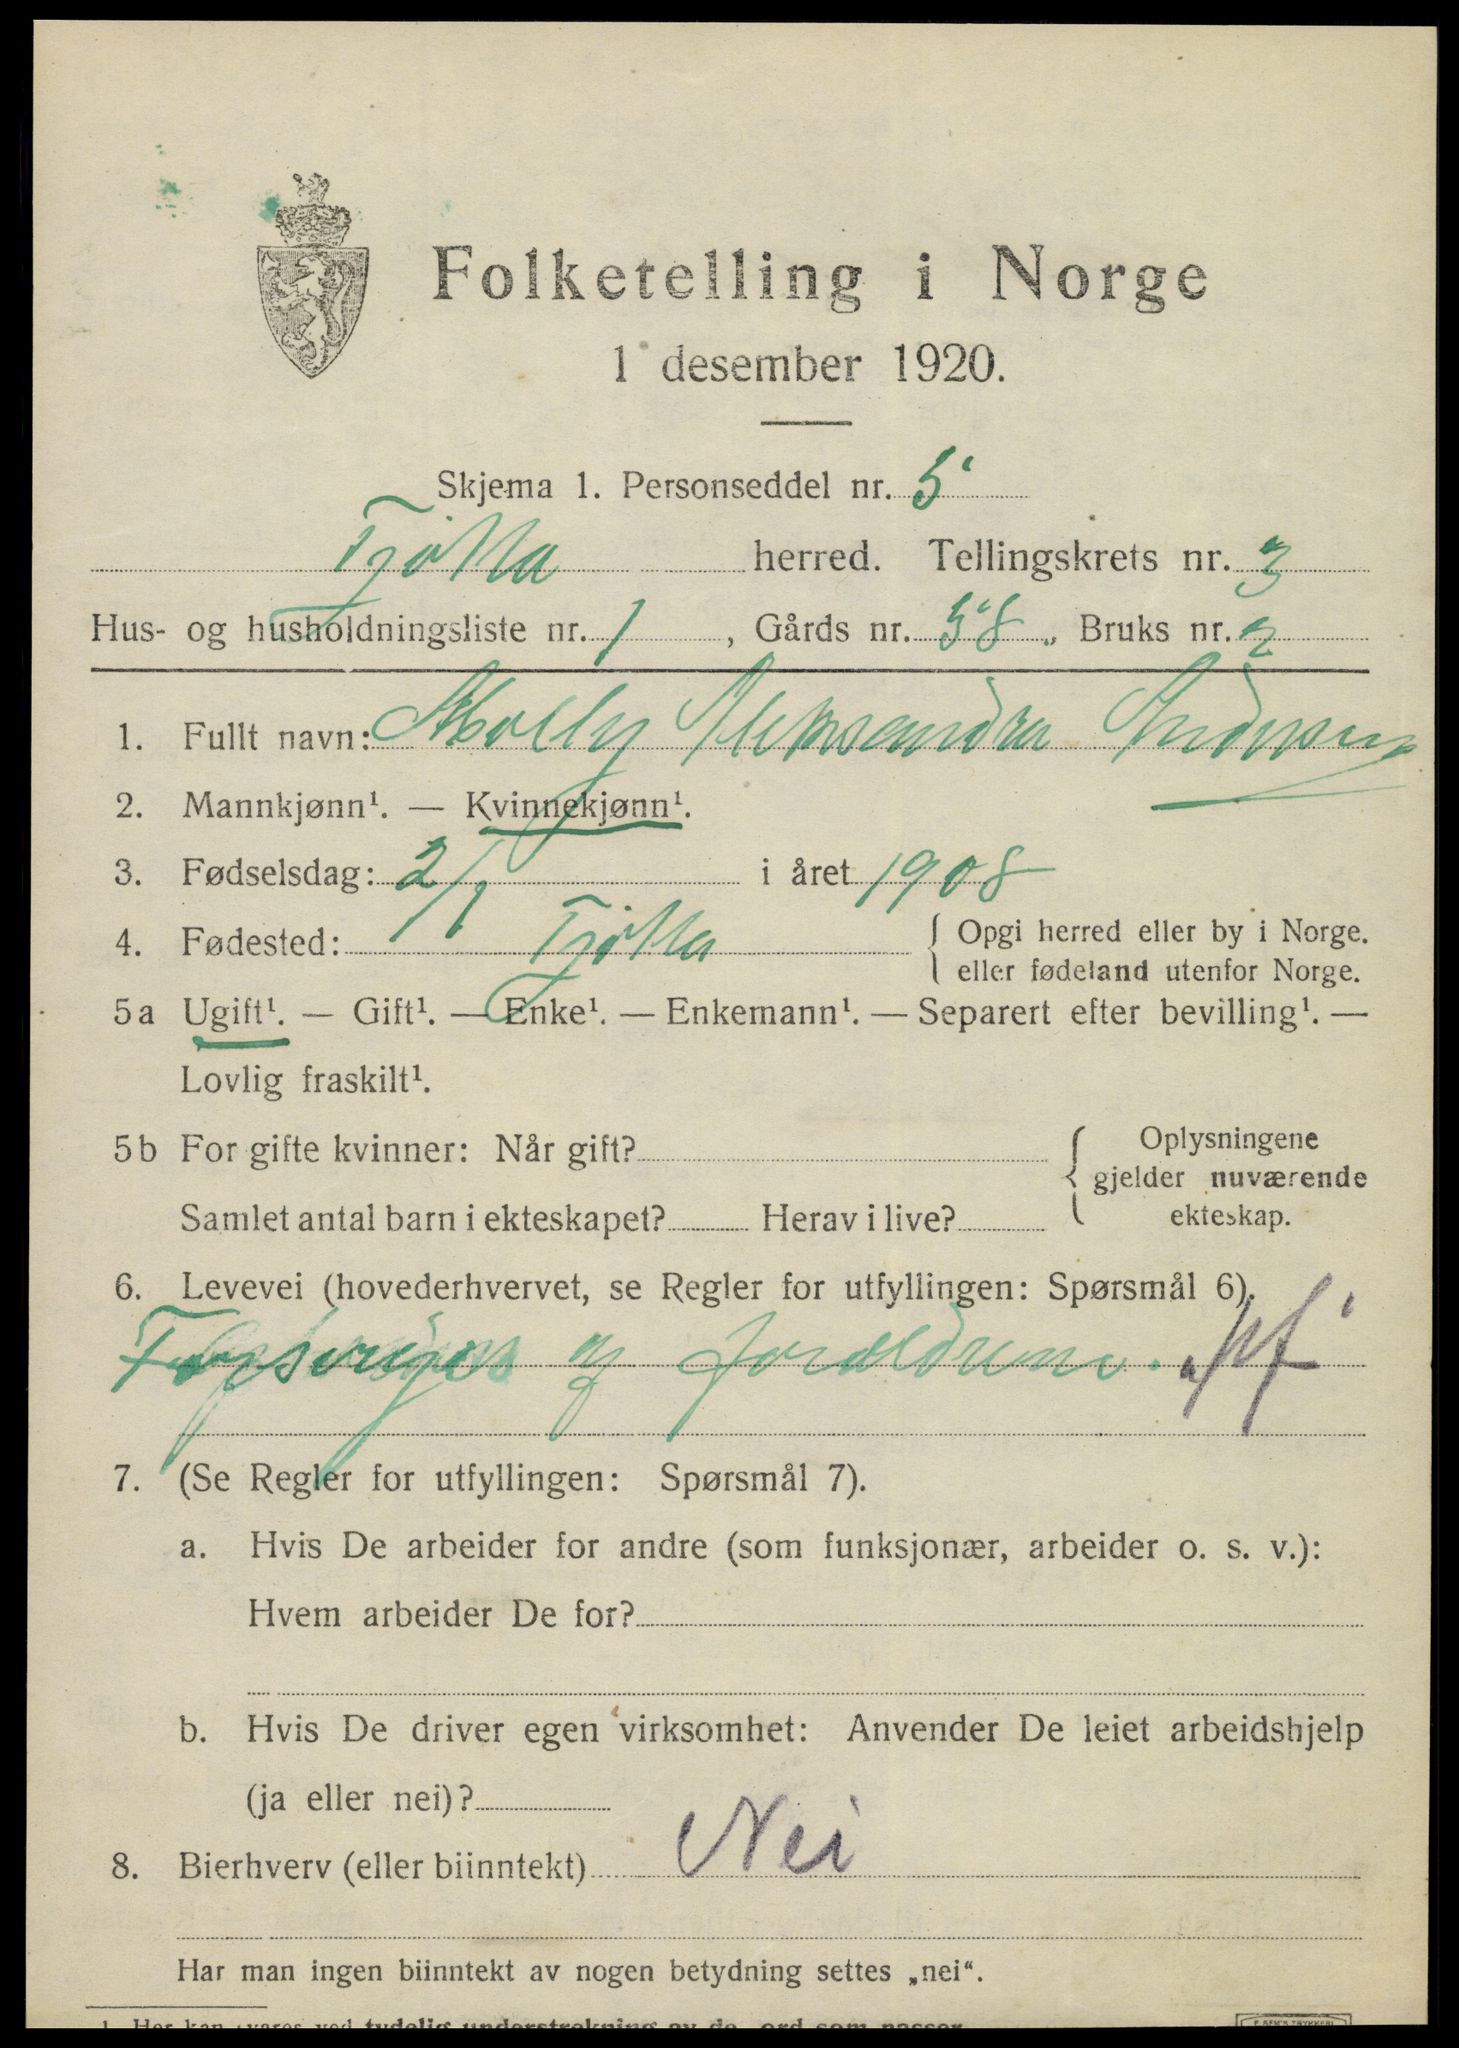 Folketelling i Norge
1 desember 1920.
Skjema 1. Personseddel nr. 5
Tjøtta herred. Tellingskrets nr. 3
Hus- og husholdningsliste nr. 1, Gårds nr. 58, Bruks nr. 2
1. Fullt navn: Molly Aleksandra Andersen
2. Mannkjønn¹. — Kvinnekjønn¹.
3. Fødselsdag: 2/1 i året 1908
4. Fødested: Tjøtta { Opgi herred eller by i Norge.
eller fødeland utenfor Norge.
5a Ugift¹. — Gift¹. — Enke¹. — Enkemann¹. — Separert efter bevilling¹. —
Lovlig fraskilt¹.
5b For gifte kvinner: Når gift? { Oplysningene
gjelder nuværende
Samlet antal barn i ekteskapet? Herav i live? ekteskap.
6. Levevei (hovederhvervet, se Regler for utfyllingen: Spørsmål 6).
Forsørges af forældrene.
7. (Se Regler for utfyllingen: Spørsmål 7).
a. Hvis De arbeider for andre (som funksjonær, arbeider o. s. v.):
Hvem arbeider De for?
b. Hvis De driver egen virksomhet: Anvender De leiet arbeidshjelp
(ja eller nei)?
8. Bierhverv (eller biinntekt) Nei
Har man ingen biinntekt av nogen betydning settes „nei“.
1 Her kan svares ved tydelig understrekning av de ord som passer.